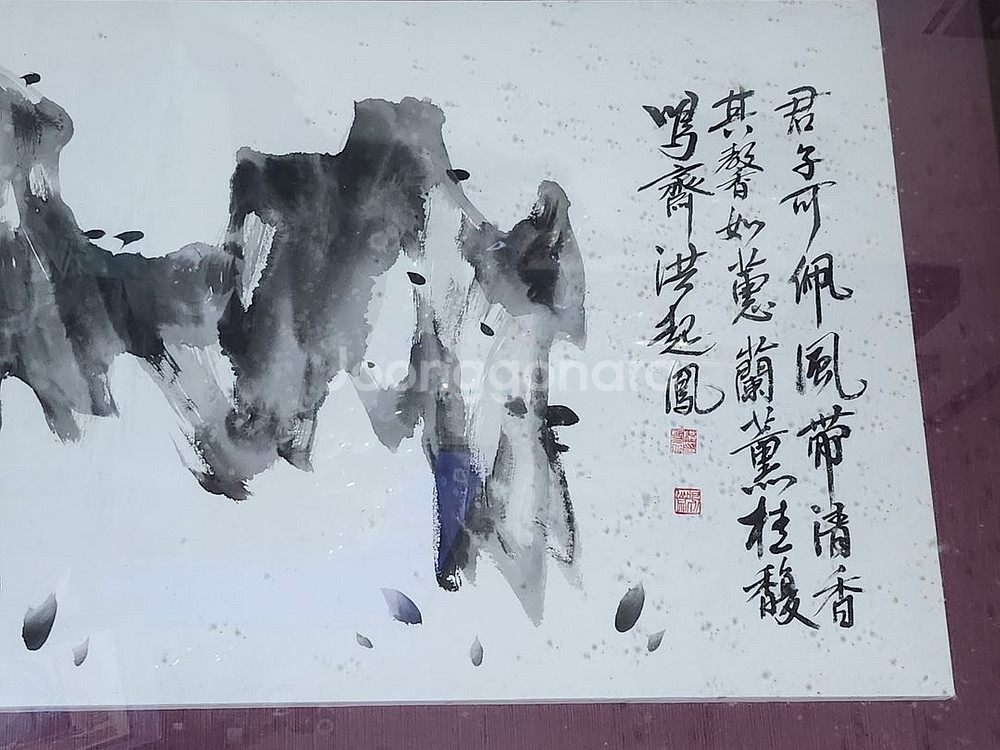 君子可佩風帶清香
其馨如蕙蘭薰桂馥
鳴齋洪起鳳
Joonggonara